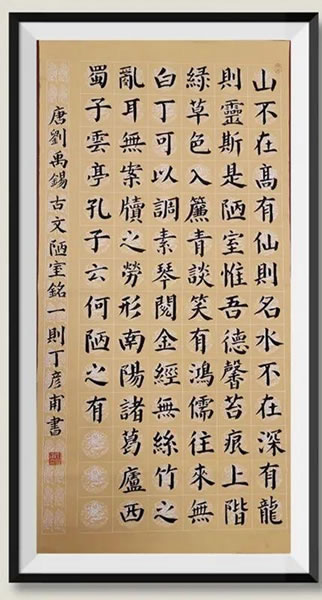 山不在高有仙則名水不在深有龍
則靈斯是陋室惟吾德馨苔痕上階
綠草色入簾青談笑有鴻儒往來無
白丁可以調素琴閱金經無絲竹之
亂耳無案牘之勞形南陽諸葛廬西
蜀子雲亭孔子云何陋之有
唐劉禹錫古文陋室銘一則丁彥甫書